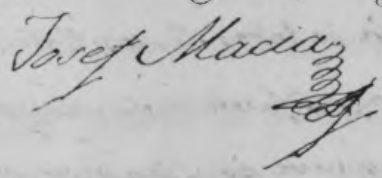 Josef Macia